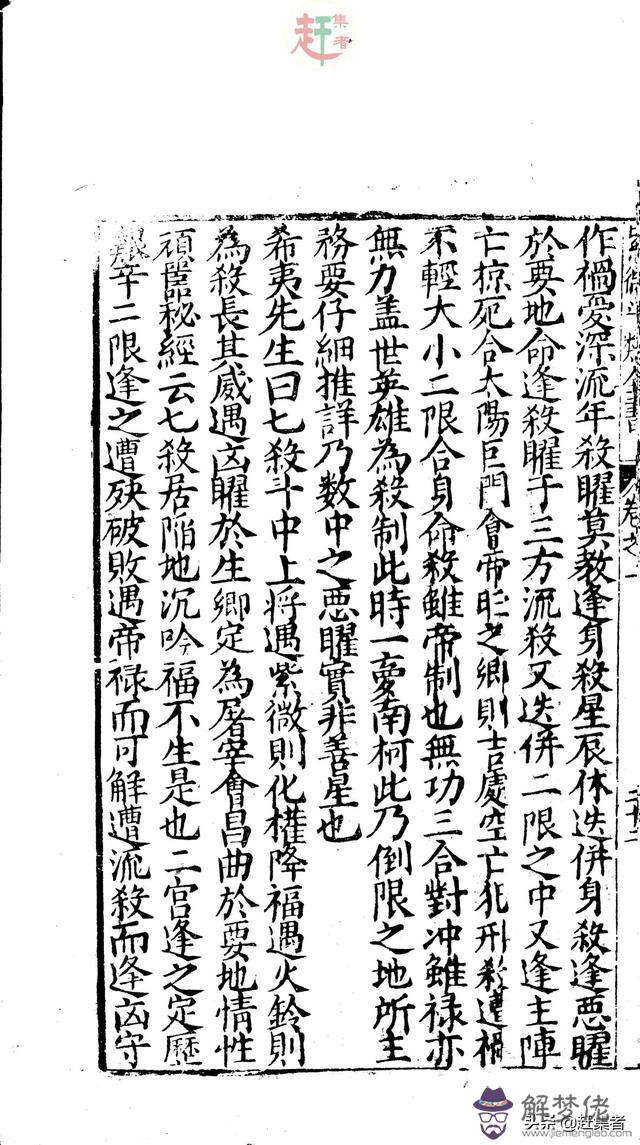 赶集者
卷之一
二十二
作禍愛深流年殺曜莫教逢身殺星辰休迭併身殺逢悪曜
於要地命逢殺曜于三方流殺又迭併二限之中又逢主陣
亡掠死合太陽巨門會帝旺之鄉則吉處空亡犯刑殺遭禍
不輕大小二限合身命殺雖帝制也無功三合對冲雖禄亦
無力盖世英雄為殺制此時一夢南柯此乃倒限之地所主
務要仔細推詳乃數中之悪曜實非善星也
希夷先生曰七殺斗中上將遇紫微則化權降福遇火鈴則
為殺長其威遇凶曜於生鄉定為屠宰會昌曲於要地情性
頑嚚秘經云七殺居陥地沉吟福不生是也二宮逢之定歷
艱辛二限逢之遭殃破敗遇帝禄而可解遭流殺而逢凶守
头条@赶集者
解梦佬
www.jiemenglab.com